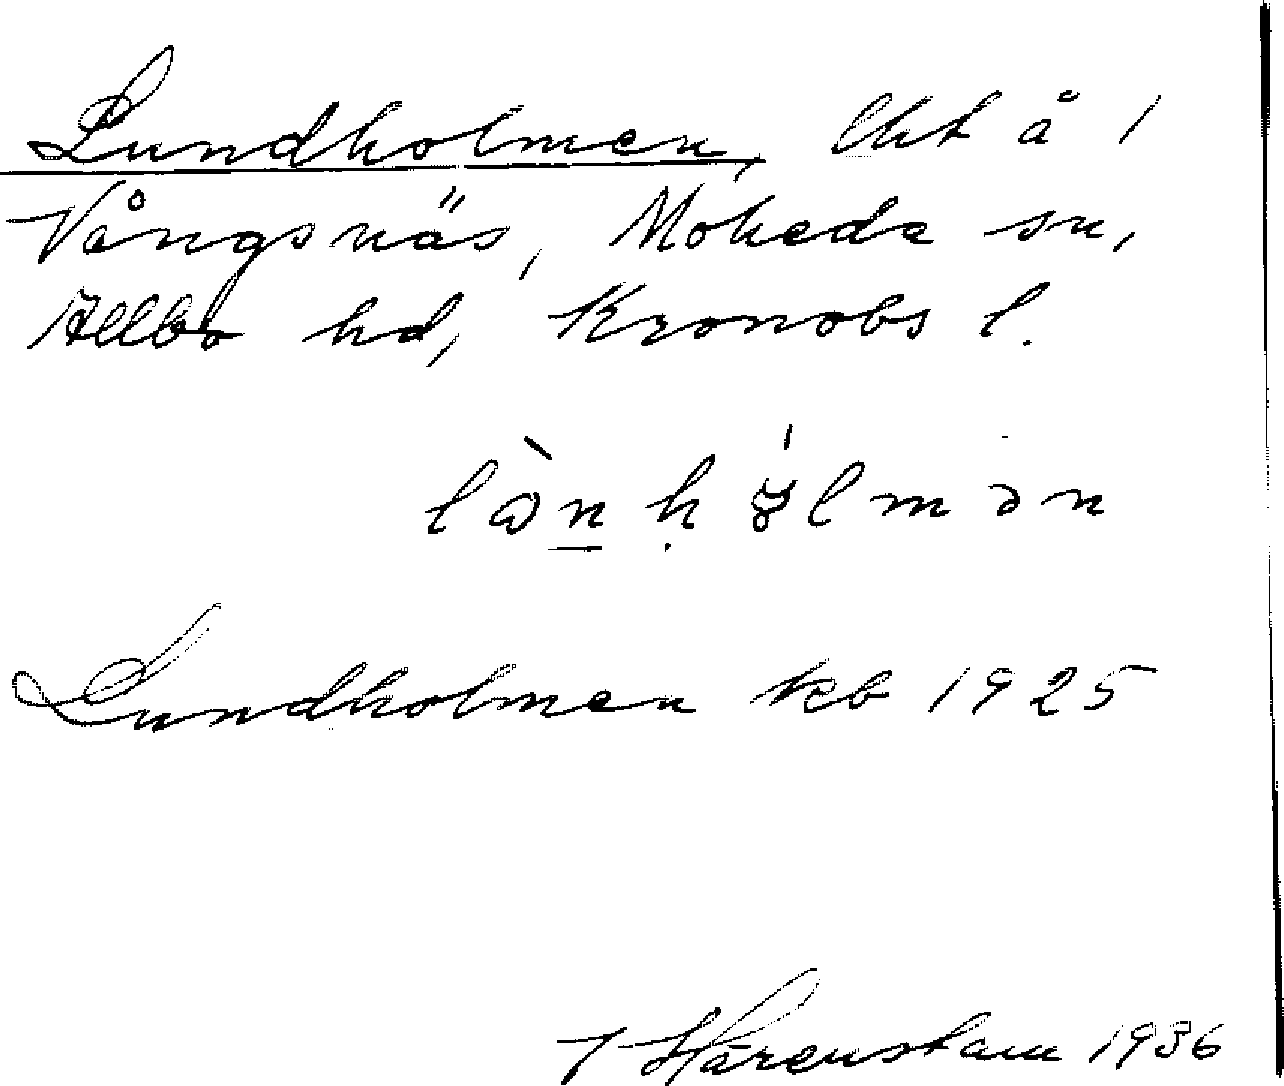 Lundholmen, lht å 1
Vångsnäs, Moheda sn,
Allbo hd, Kronobs l.
Lundholmen kb 1925
J Härenstam 1936